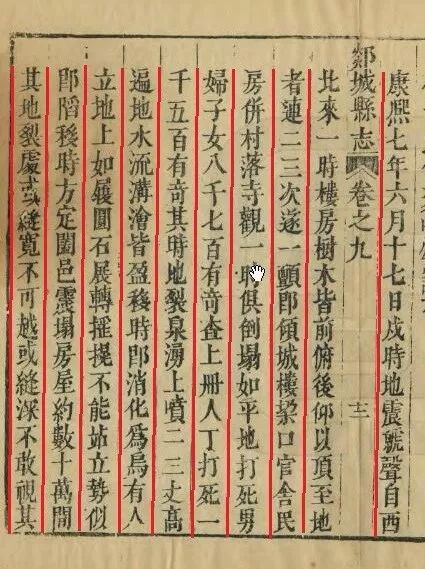 康熙七年六月十七日戌時地震虩聲自西
郯城縣志 卷之九 十二
北來一時樓房樹木皆前俯後仰以頂至地
者連二三次遂一顫即傾城樓垜口官舍民
房併村落寺觀一時俱倒塌如平地打死男
婦子女八千七百有奇查上册人丁打死一
千五百有奇其時地裂泉湧上噴二三丈高
遍地水流溝澮皆盈移時即消化爲烏有人
立地上如履圓石展轉摇擺不能站立勢似
即陷移時方定闔邑震塌房屋約數十萬間
其地裂處或縫寬不可越或縫深不敢視其